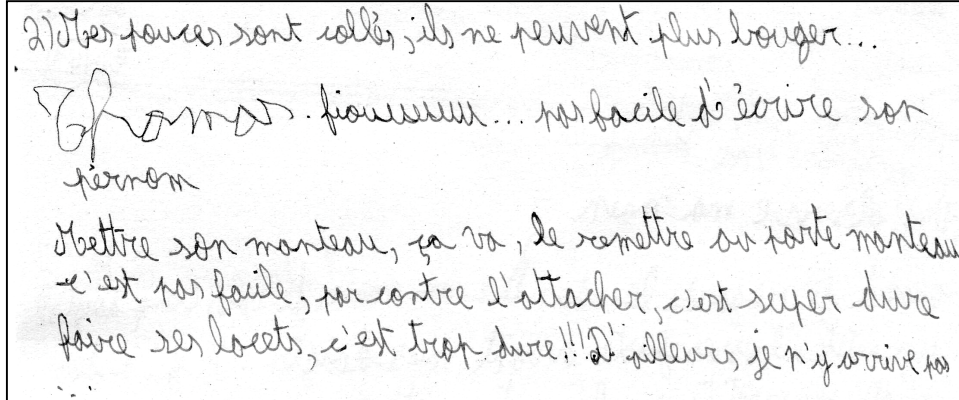 2) Mes pouces sont collés, ils ne peuvent plus bouger...
Thomas. fiouuuuuu... pas facile d'écrire son
pérnom
Mettre son manteau, ça va, le remettre au porte manteau
c'est pas facile, par contre l'attacher, c'est super dure
faire ses lacets, c'est trop dure!!! D'ailleurs je n'y arrive pas
...